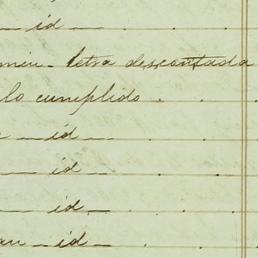 — id —
letra descontada
lo cumplido .
— id —
— id —
— id —
— id —